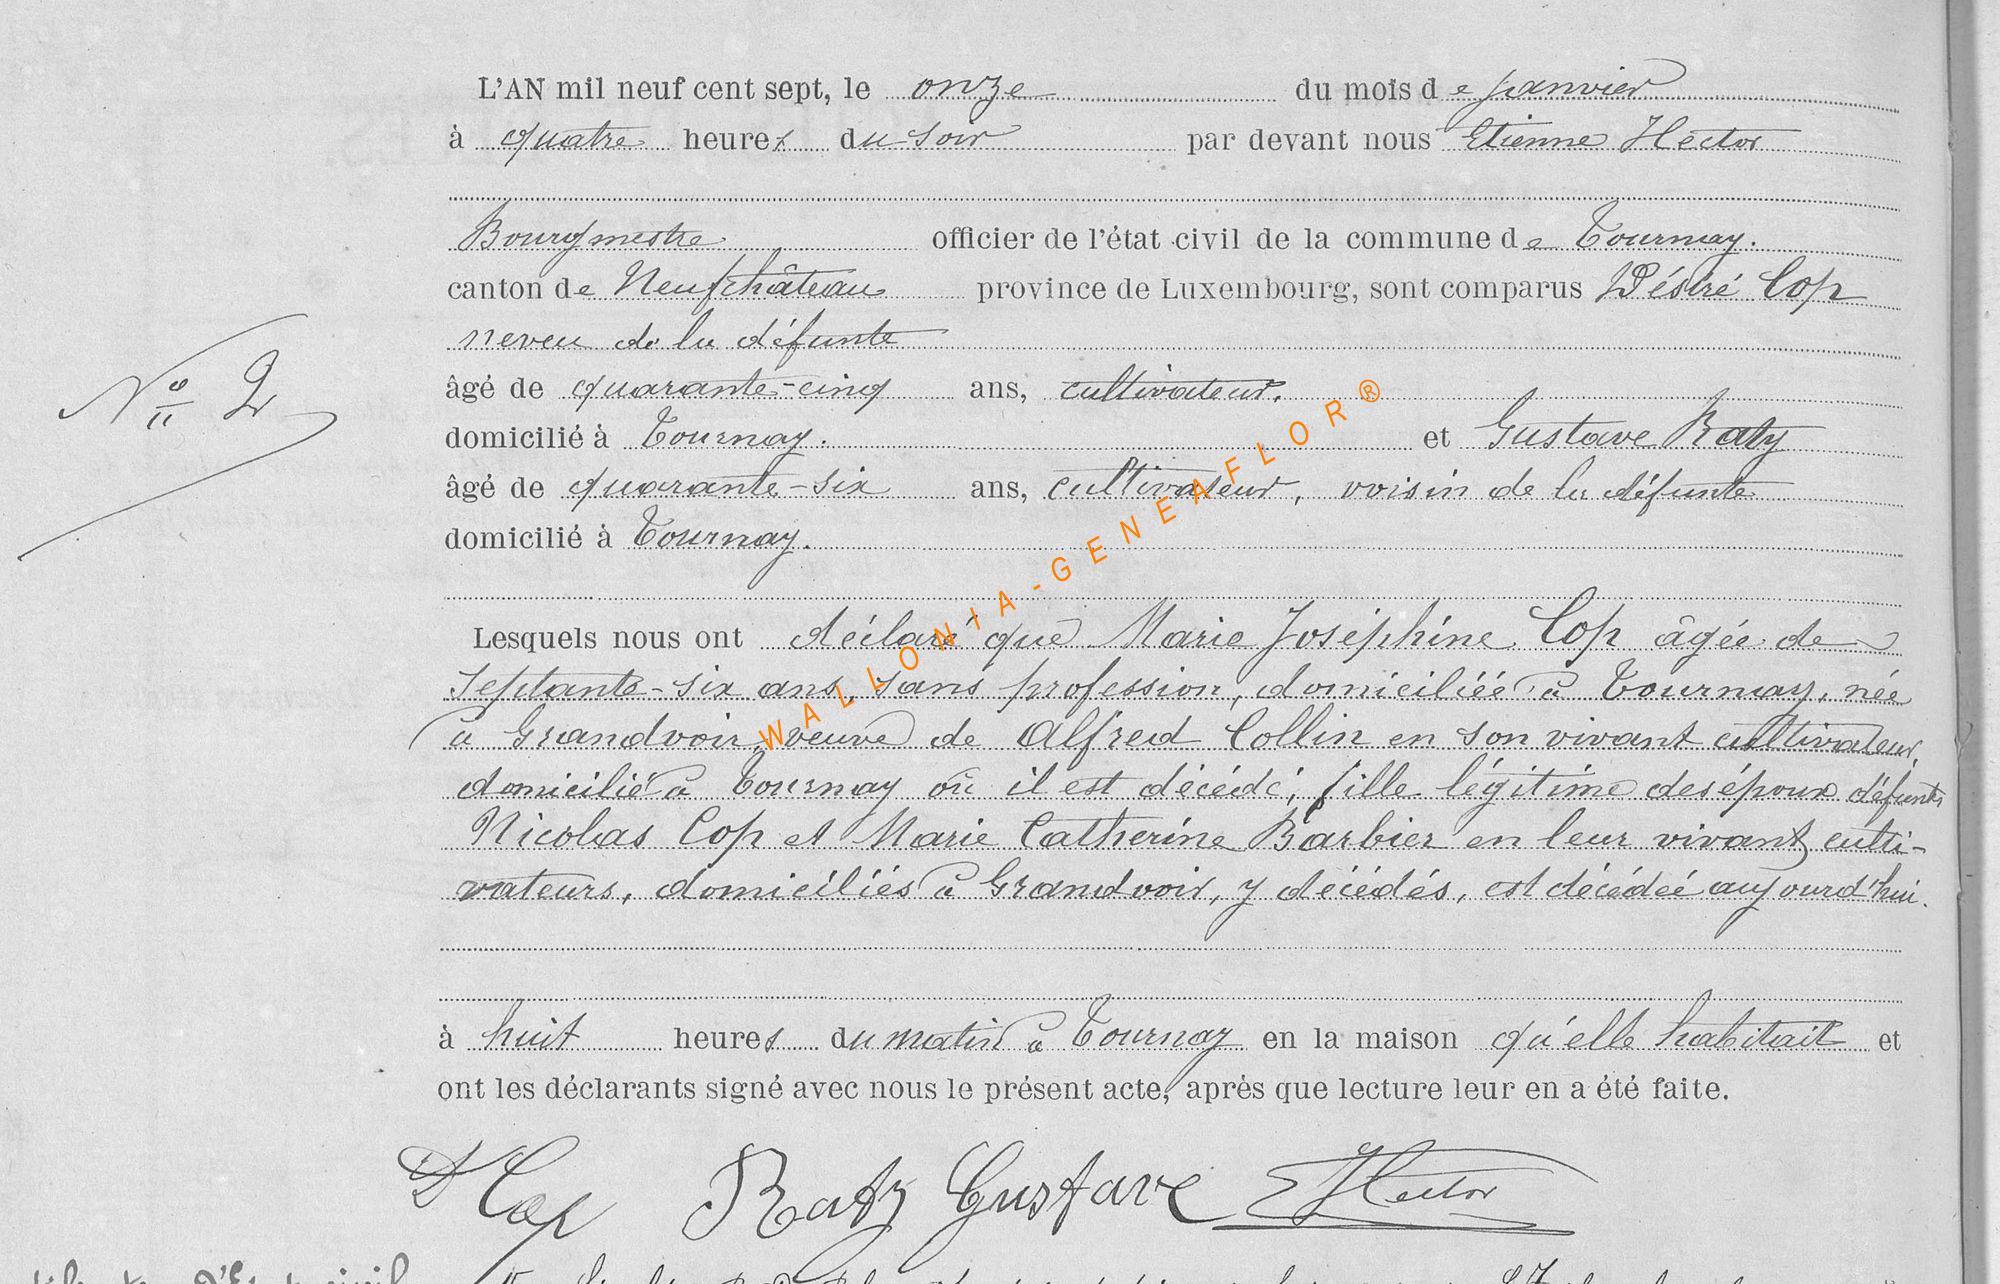 L'AN mil neuf cent sept, le onze du mois de janvier
à quatre heures du soir par devant nous Etienne Hector
Bourgmestre officier de l'état civil de la commune de Tournay.
canton de Neufchâteau province de Luxembourg, sont comparus Désiré Cop
neveu de la défunte
N° 2
âgé de quarante-cinq ans, cultivateur.
domicilié à Tournay. et Gustave Raty
âgé de quarante-six ans, cultivateur, voisin de la défunte
domicilié à Tournay.
WALLONIA-GENEAFLOR®
Lesquels nous ont déclaré que Marie Joséphine Cop âgée de
septante-six ans, sans profession, domiciliée à Tournay, née
à Grandvoir, veuve de Alfred Collin en son vivant cultivateur,
domicilié à Tournay où il est décédé, fille légitime des époux défunts
Nicolas Cop et Marie Catherine Barbier en leur vivant culti-
vateurs, domiciliés à Grandvoir, y décédés, est décédée aujourd'hui.
à huit heures du matin à Tournay en la maison qu'elle habitait et
ont les déclarants signé avec nous le présent acte, après que lecture leur en a été faite.
D Cop Raty Gustave E Hector